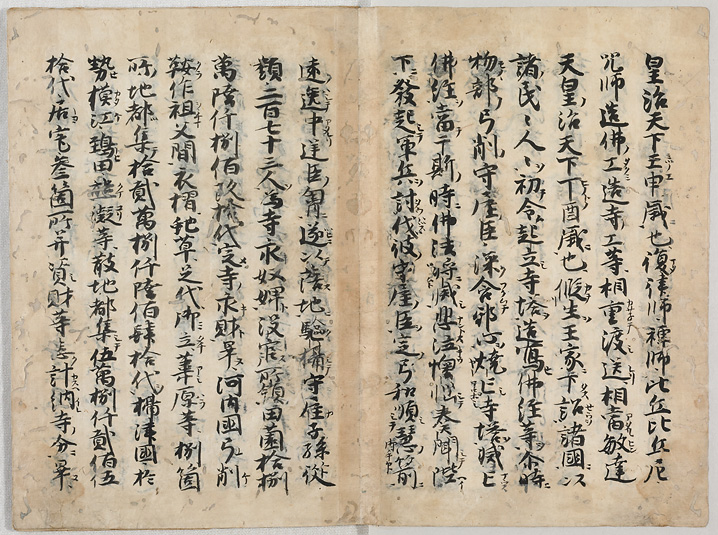 皇治天下壬申歳也復律師禅師比丘比丘尼
咒師造佛工造寺工等相重渡送相當敏達
天皇治天下丁酉歳也倐生王家下詔諸國以
諸氏々人々初令起立寺塔造寫佛經等尒時
物部弓削守屋臣深含邪心焼亡寺塔滅亡
佛經當于斯時佛法将滅悲泣懊惱奏聞陛
下發起軍兵討伐彼守屋臣定弓和順慧箭
遠送中逆臣胷遂以落地驗楯守屋子孫從
類二百七十三人為寺永奴婢没官所領田薗拾捌
萬陸仟捌佰玖拾代定寺永財畢河内國弓削
鞍作祖父間衣摺虵草足代御立葦原等捌箇
所地都集拾貳萬捌仟陸佰肆拾代攝津國於
勢摸江鵄田熊凝等散地都集伍萬捌仟貳佰伍
拾代居宅叄箇所并資財等悉計納寺分畢